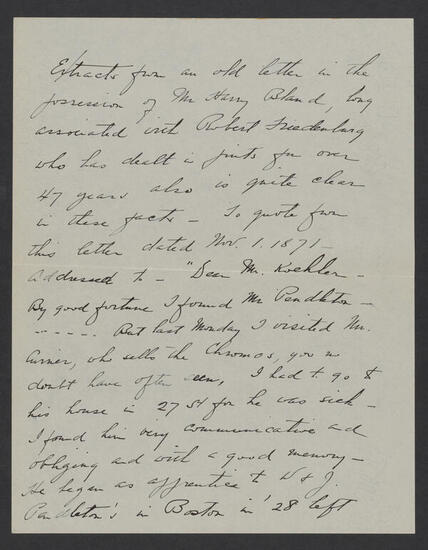 Extracts from an old letter in the
possession of Mr Harry Bland, long
associated with Robert Friedenburg
who has dealt in prints for over
47 years also is quite clear
in these facts - To quote from
this letter dated Nov. 1. 1871 -
addressed to - "Dear Mr. Koehler -
By good fortune I found Mr Pendleton -
- - - - - But last Monday I visited Mr.
Currier, who sells the Chromos, you no
doubt have often seen, I had to go to
his house in 27 St for he was sick -
I found him very communicative and
obliging and with a good memory -
He began as apprentice to W & J.
Pendleton's in Boston in '28 left